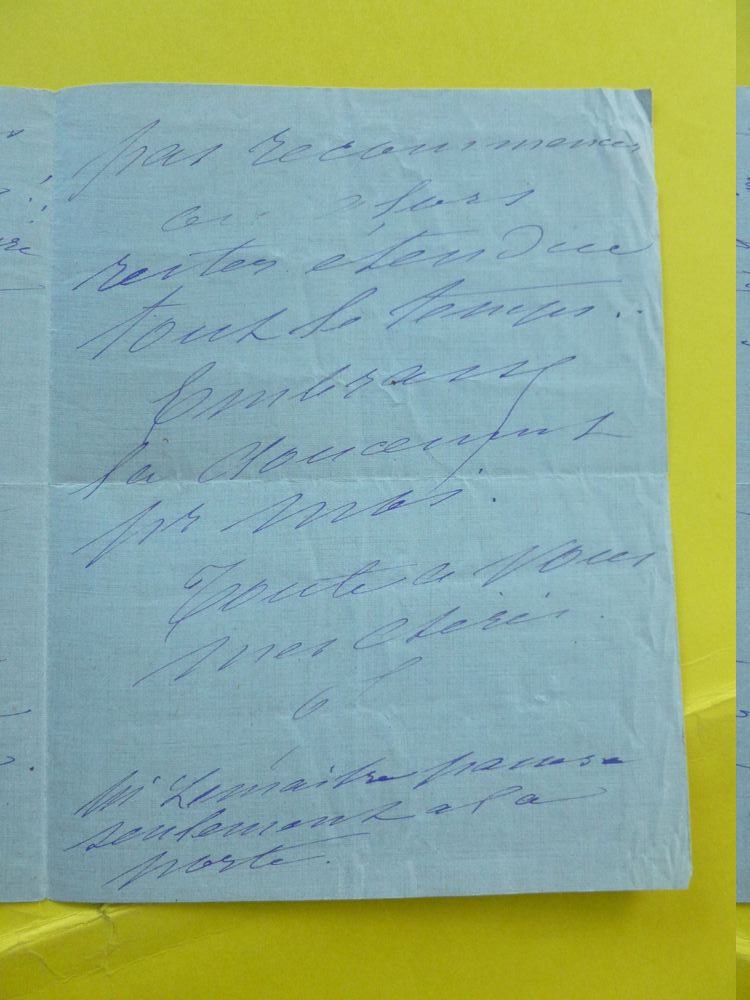 pas recommencer
ou alors
rester étendue
tout le temps..
Embrassez
la doucement
pr moi.
Toute a vous
mes chéris.
Mr Lemaitre passera
seulement a la
porte.